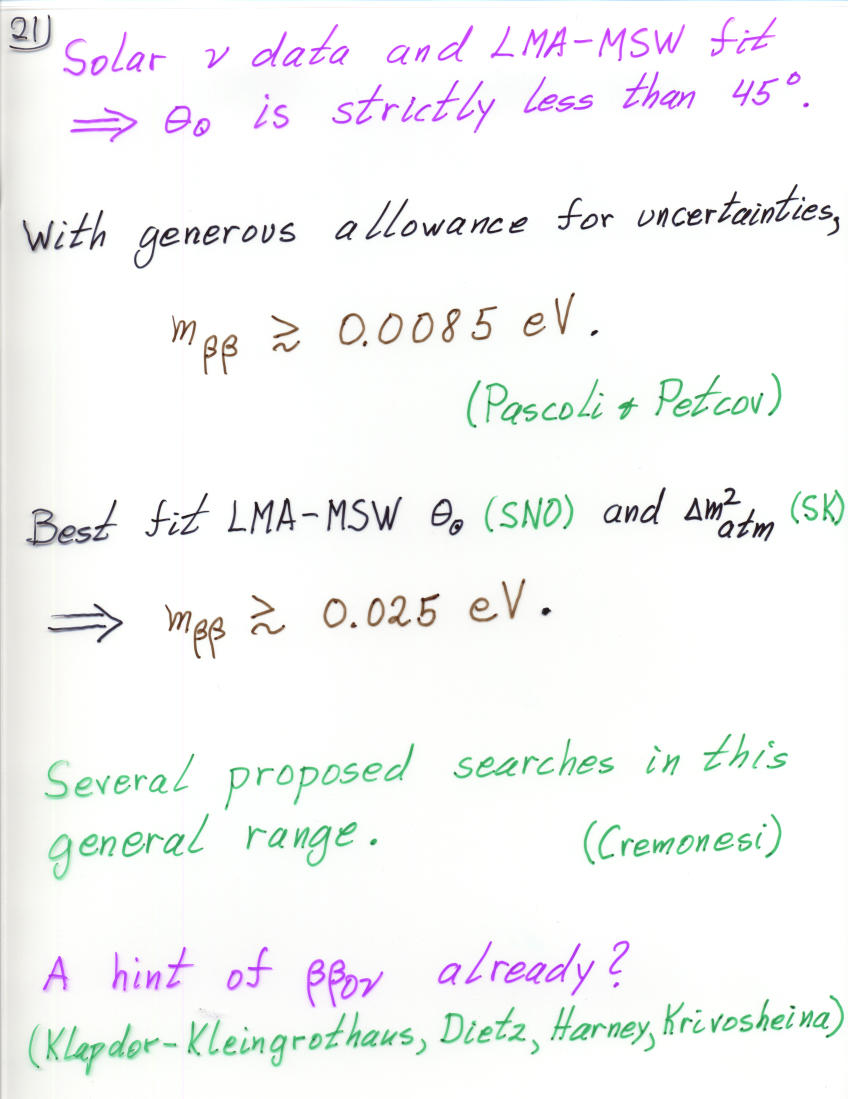 21)
Solar ν data and LMA-MSW fit
⟹ θ⊙ is strictly less than 45°.
With generous allowance for uncertainties,
m_ββ ≳ 0.0085 eV.
(Pascoli & Petcov)
Best fit LMA-MSW θ⊙ (SNO) and Δm²_atm (SK)
⟹ m_ββ ≳ 0.025 eV.
Several proposed searches in this
general range. (Cremonesi)
A hint of ββ_0ν already?
(Klapdor-Kleingrothaus, Dietz, Harney, Krivosheina)